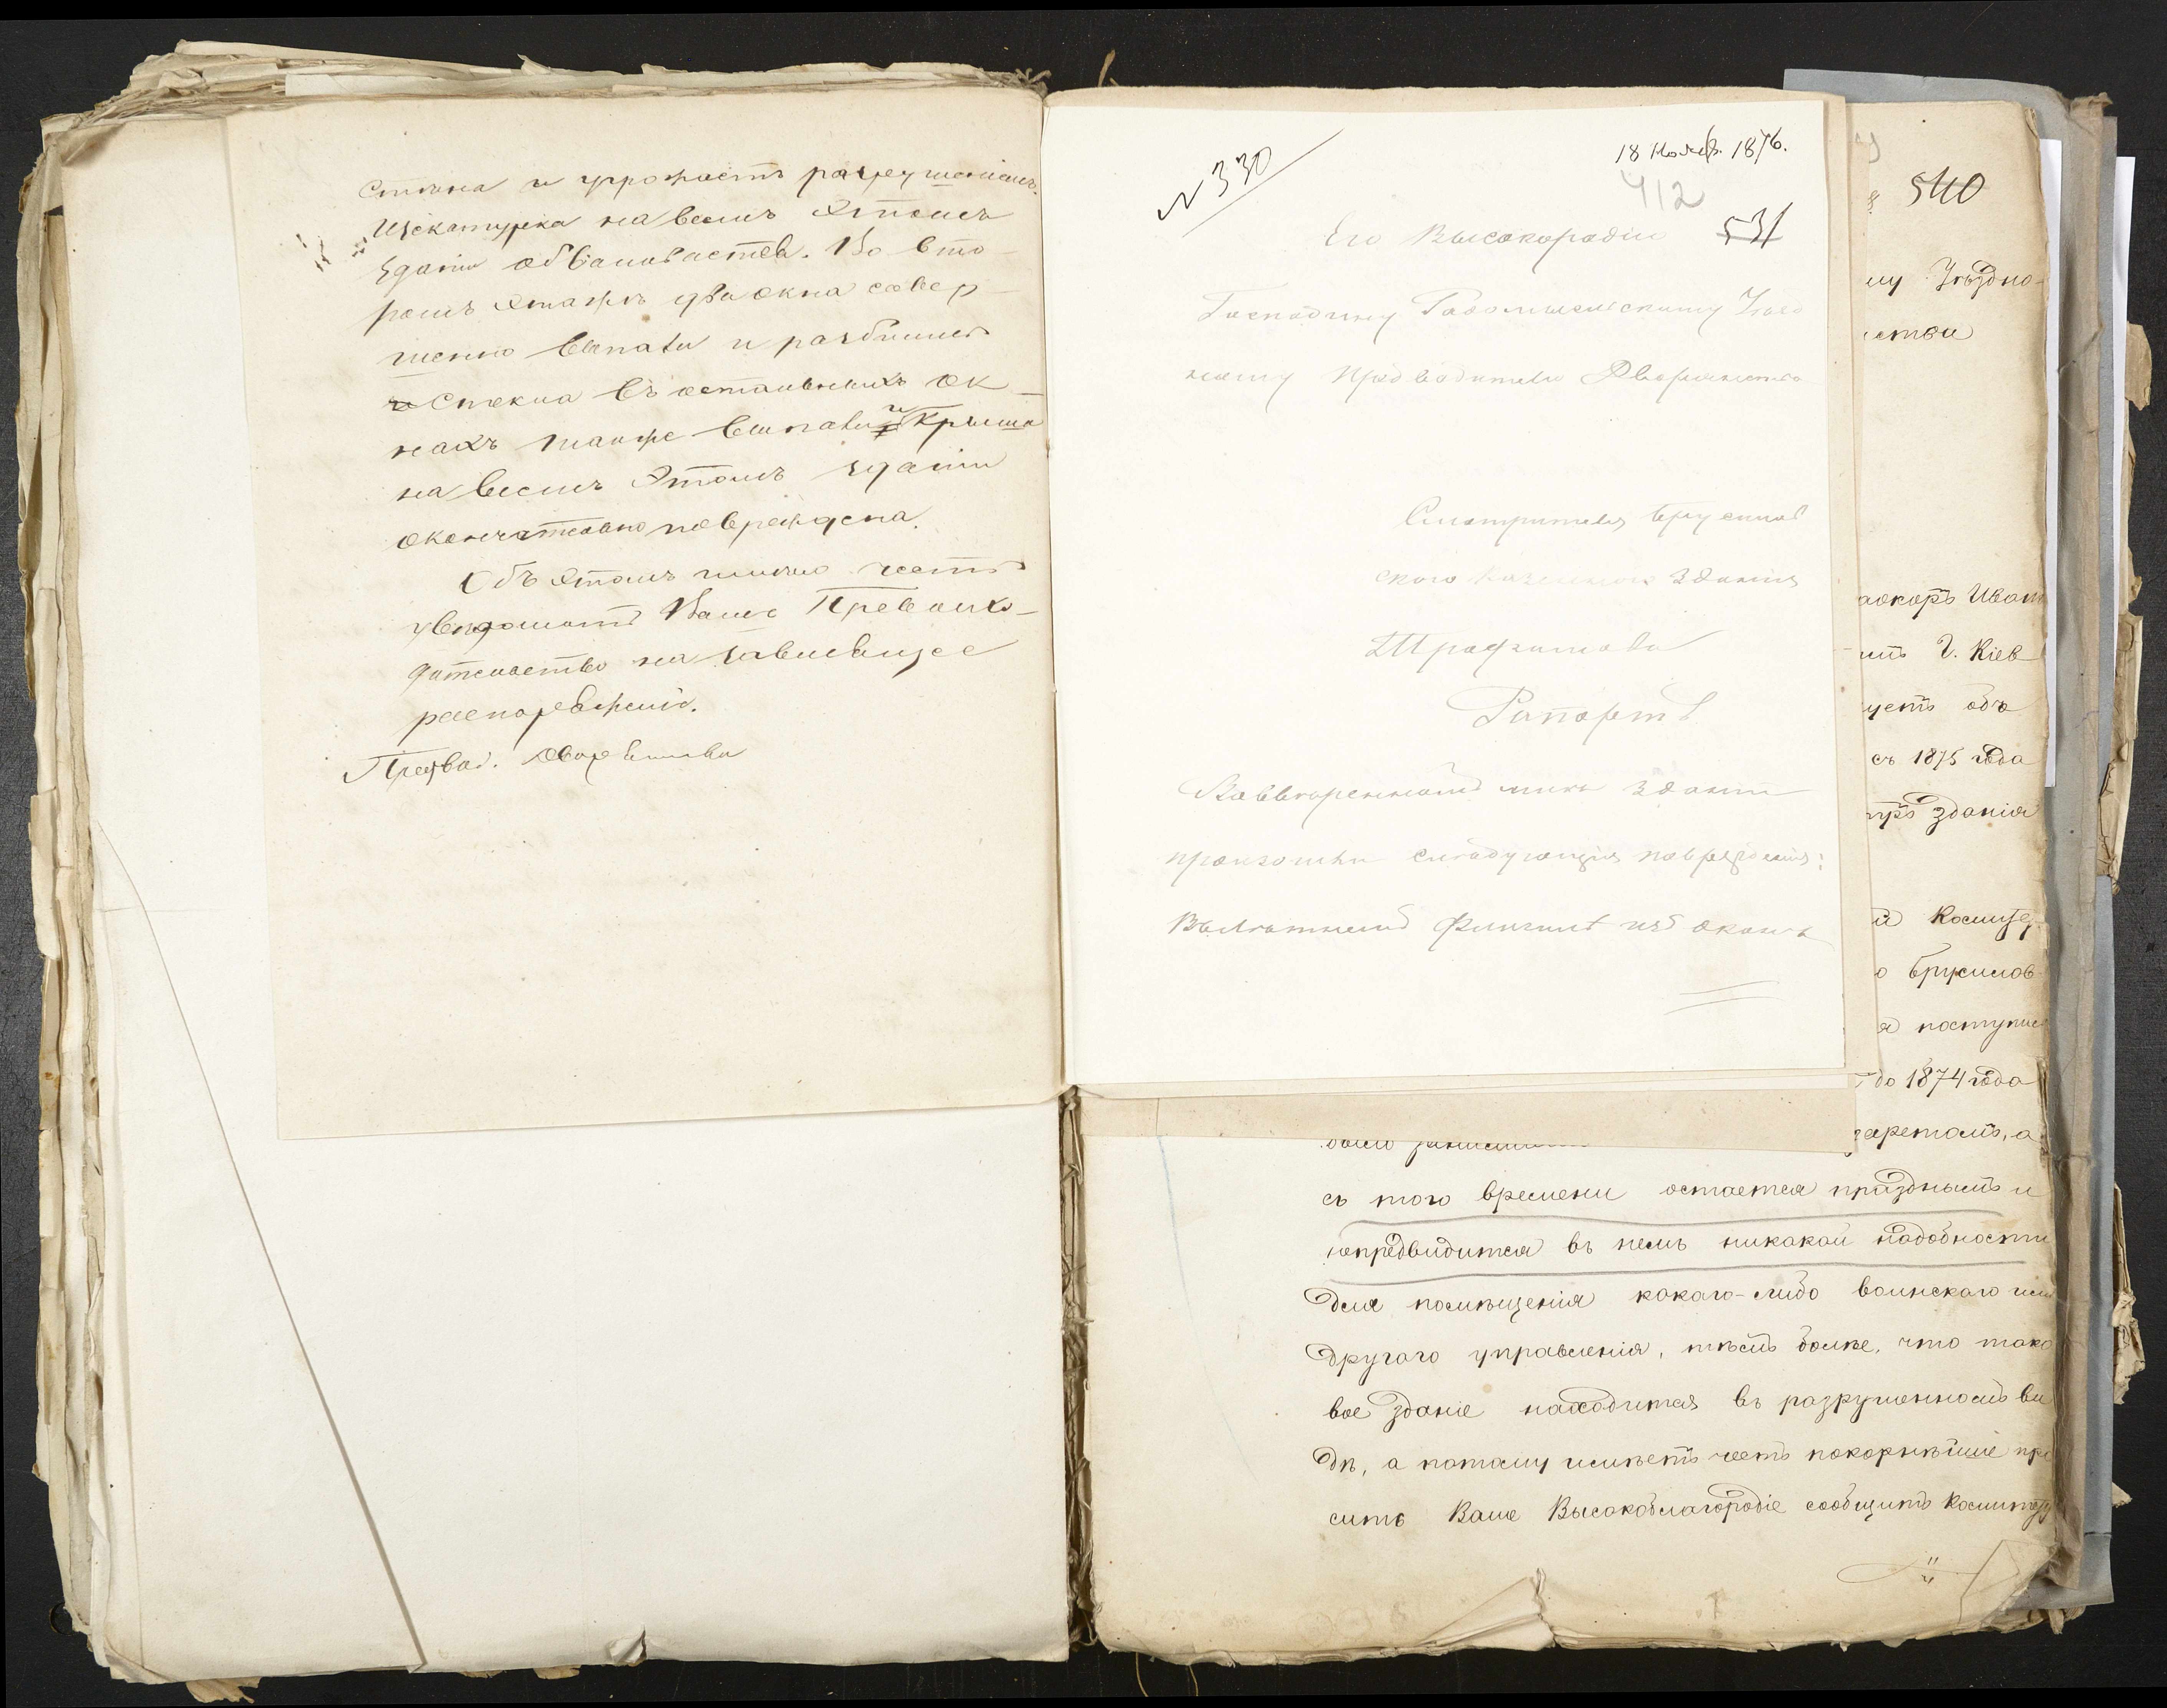 стѣна и угрожаетъ разрушеніемъ.
Щекатурка на всемъ этомъ
зданіи обвалилась. Во вто-
ромъ этажѣ два окна совер-
шенно выпали и разбиты
Стекла въ остальныхъ ок-
нахъ также выпали и Крыша
на всемъ этомъ зданіи
окончательно повреждена.
Объ этомъ имѣю честь
увѣдомить Ваше Превосхо-
дительство на зависящее
распоряженіе.
Предвод. Дворянства
N 330
18 Нояб. 1876.
412
531
Его Высокородію
Господину Радомысльскому Уѣзд
ному Предводителю Дворянства
Смотрителя Брусилов
скаго Казеннаго Зданія
Трофимова
Рапортъ
Во ввѣренномъ мнѣ зданіи
произошли слѣдующія поврежденія:
Въ Лѣтнемъ Флигелѣ изъ оконъ
540
му Уѣздно-
ства
Иван
г. Кіев
уетъ объ
съ 1875 года
зданія
Комитет
о Брусилов
я поступил
до 1874 года
заретомъ, а
было
съ того времени остается празднымъ и
непредвидится въ немъ никакой надобности
для помѣщенія какого-либо воинскаго или
другаго управленія, тѣмъ болѣе, что тако
вое зданіе находится въ разрушенномъ ви
дѣ, а потому имѣетъ честь покорнѣйше про
сить Ваше Высокоблагородіе сообщить Комитету